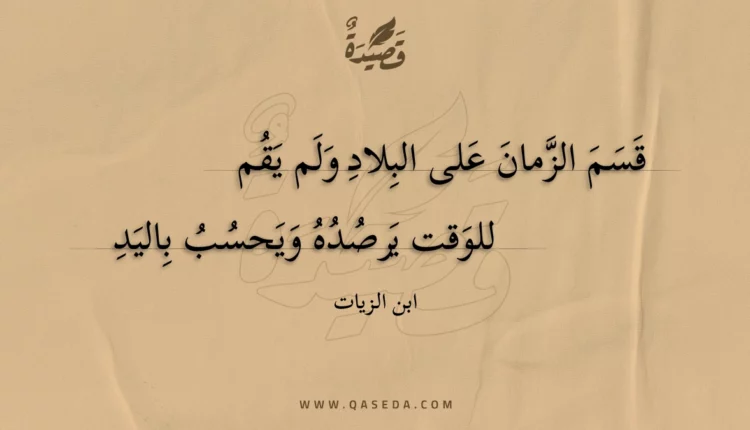 قَصِيْدَةٌ
قَسَمَ الزَّمانَ عَلى البِلادِ وَلَم يَقُم
للوَقت يَرصُدُهُ وَيَحسُبُ بِاليَدِ
ابن الزيات
WWW.QASEDA.COM